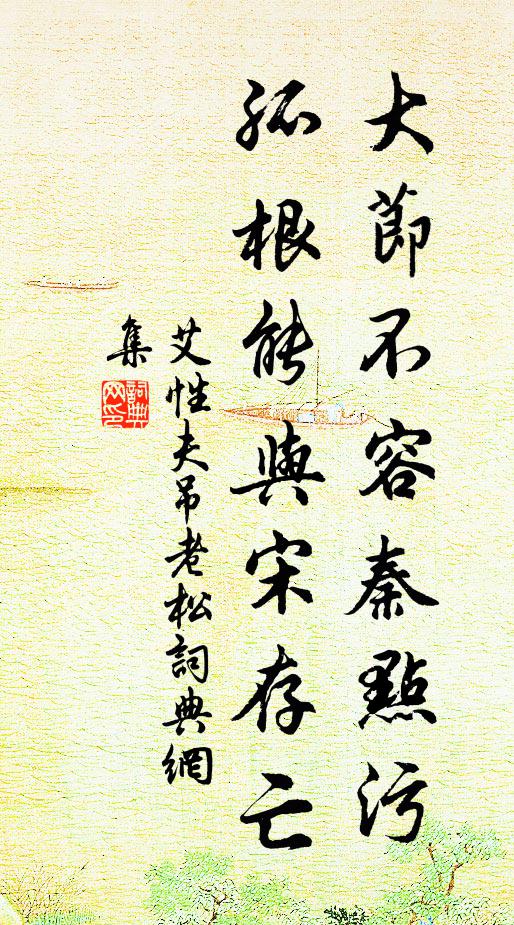 大節不容秦點污
孤根能與宋存亡
艾性夫吊老松詞典網
集
詞典
网印